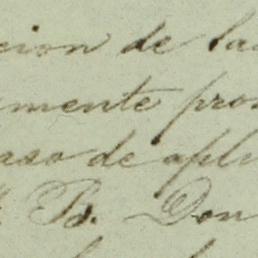 cion de la
mente pro
aso de apli
B. Don